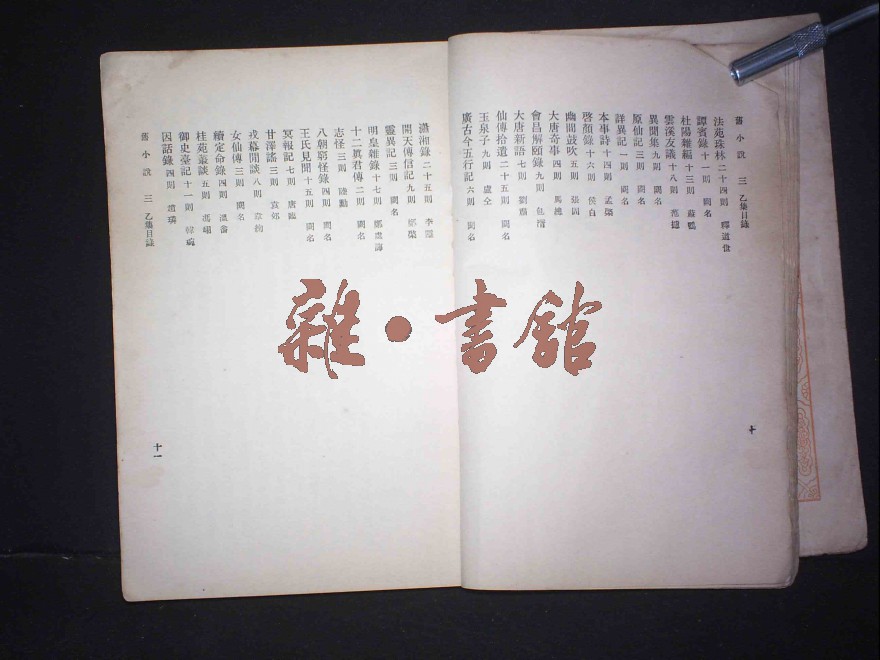 舊小說 三 乙集目錄
法苑珠林 二十四則 釋道世
譚賓錄 十一則 闕名
杜陽雜編 十三則 蘇鶚
雲溪友議 十八則 范攄
異聞集 九則 闕名
原仙記 三則 闕名
詳異記 一則 闕名
本事詩 十四則 孟棨
啓顏錄 十六則 侯白
幽閒鼓吹 五則 張固
大唐奇事 四則 馬總
會昌解頤錄 九則 包湑
大唐新語 七則 劉肅
仙傳拾遺 二十五則 闕名
玉泉子 九則 盧仝
廣古今五行記 六則 闕名
十
瀟湘錄 二十五則 李隱
開天傳信記 九則 鄭棨
靈異記 三則 闕名
明皇雜錄 十七則 鄭處誨
十二眞君傳 二則 闕名
志怪 三則 陸勳
八朝窮怪錄 四則 闕名
王氏見聞 十五則 闕名
冥報記 七則 唐臨
甘澤謠 三則 袁郊
戎幕閒談 八則 韋絢
女仙傳 三則 闕名
續定命錄 四則 溫畬
桂苑叢談 五則 馮翊
御史臺記 十一則 韓琬
因話錄 四則 趙璘
舊小說 三 乙集目錄
十一
雜·書館